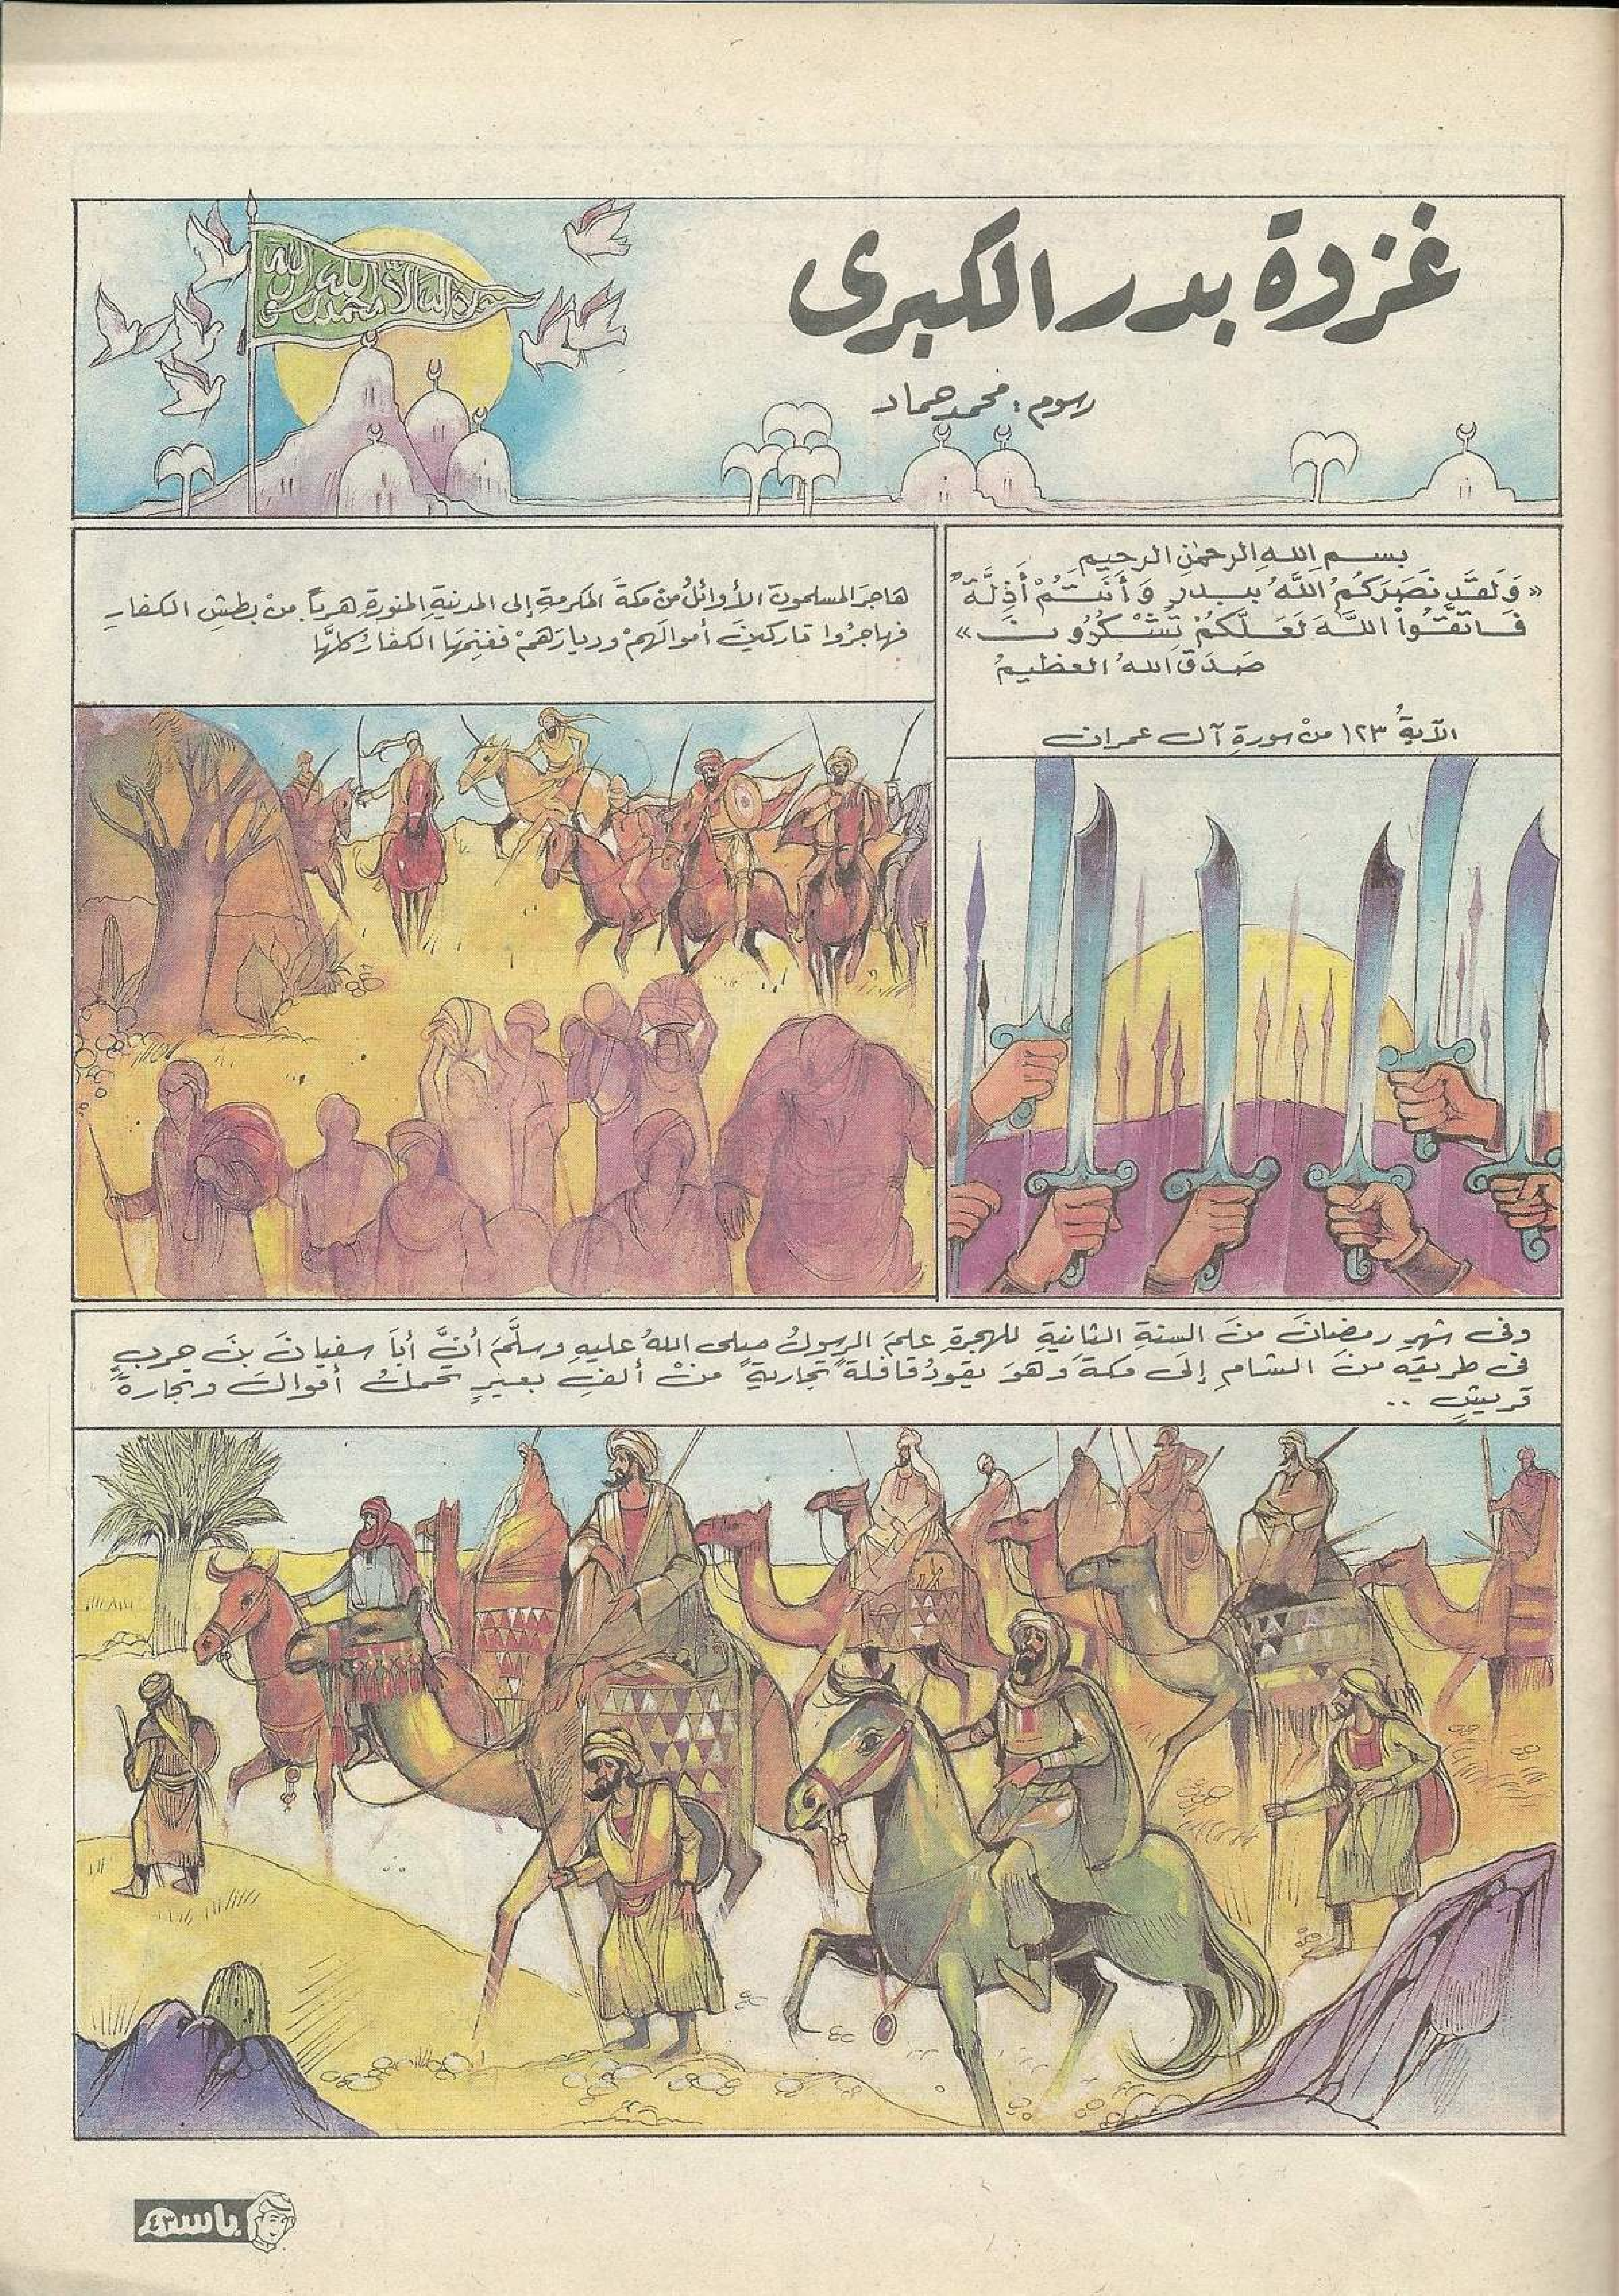 غزوة بدر الكبرى
رسوم: محمد حماد
لا إله إلا الله محمد رسول الله
بسم اللهِ الرحمٰنِ الرحيم
« وَلَقَدْ نَصَرَكُمُ اللَّهُ بِبَدْرٍ وَأَنْتُمْ أَذِلَّةٌ
فَاتَّقُوا اللَّهَ لَعَلَّكُمْ تَشْكُرُونَ »
صَدَقَ اللهُ العظيمُ
الآيةُ ١٢٣ منْ سورةِ آل عمران
هاجرَ المسلمونَ الأوائلُ من مكةَ المكرمةِ إلى المدينةِ المنورةِ هرباً منْ بطشِ الكفارِ
فهاجرُوا تاركينَ أموالَهمْ وديارَهمْ فغنِمَهَا الكفارُ كلَّها
وفى شهرِ رمضانَ منَ السنةِ الثانيةِ للهجرةِ علمَ الرسولُ صلى اللهُ عليهِ وسلَّمَ أنَّ أبا سفيانَ بنَ حربٍ
فى طريقِه منَ الشامِ إلَى مكةَ وهوَ يقودُ قافلةً تجاريةً منْ ألفِ بعيرٍ تحملُ أموالَ وتجارةَ
قريشٍ ..
باسم
٤٣